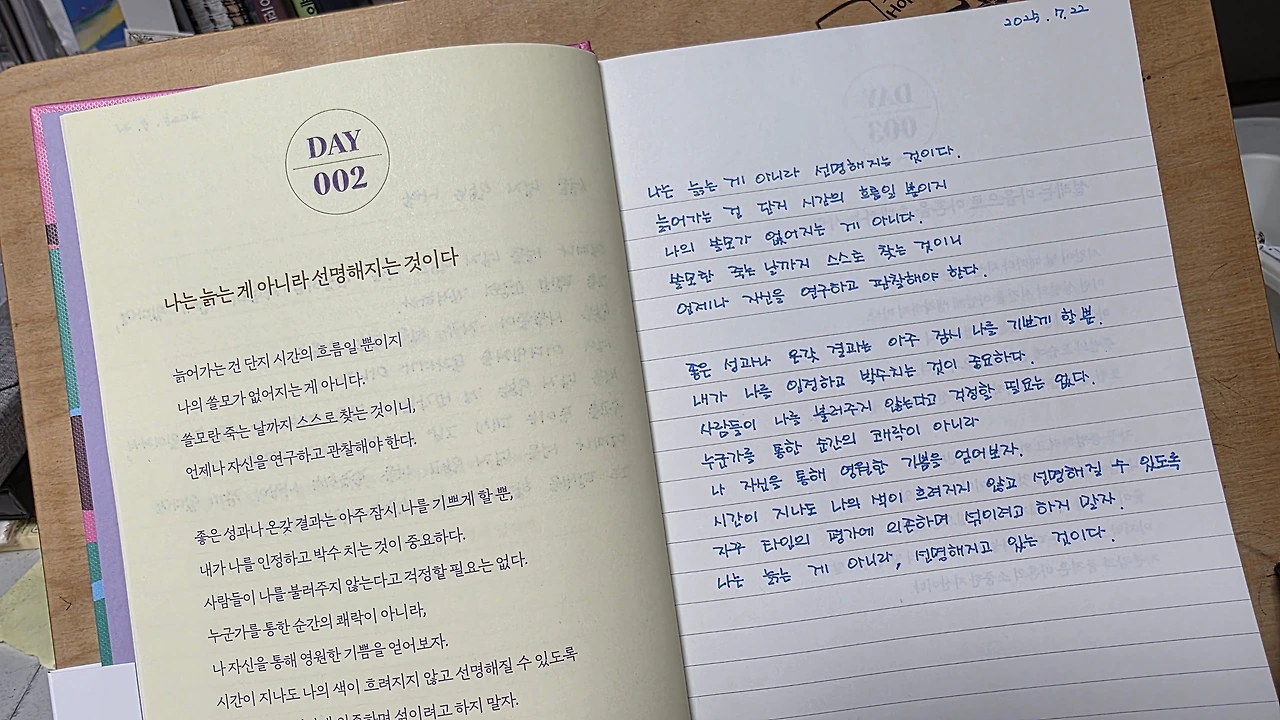 DAY
002
나는 늙는 게 아니라 선명해지는 것이다
늙어가는 건 단지 시간의 흐름일 뿐이지
나의 쓸모가 없어지는 게 아니다.
쓸모란 죽는 날까지 스스로 찾는 것이니,
언제나 자신을 연구하고 관찰해야 한다.
좋은 성과나 온갖 결과는 아주 잠시 나를 기쁘게 할 뿐,
내가 나를 인정하고 박수 치는 것이 중요하다.
사람들이 나를 불러주지 않는다고 걱정할 필요는 없다.
누군가를 통한 순간의 쾌락이 아니라,
나 자신을 통해 영원한 기쁨을 얻어보자.
시간이 지나도 나의 색이 흐려지지 않고 선명해질 수 있도록
의존하며 섞이려고 하지 말자.
2025.7.22
나는 늙는 게 아니라 선명해지는 것이다.
늙어가는 건 단지 시간의 흐름일 뿐이지
나의 쓸모가 없어지는 게 아니다.
쓸모란 죽는 날까지 스스로 찾는 것이니
언제나 자신을 연구하고 관찰해야 한다.
좋은 성과나 온갖 결과는 아주 잠시 나를 기쁘게 할 뿐.
내가 나를 인정하고 박수치는 것이 중요하다.
사람들이 나를 불러주지 않는다고 걱정할 필요는 없다.
누군가를 통한 순간의 쾌락이 아니라
나 자신을 통해 영원한 기쁨을 얻어보자.
시간이 지나도 나의 색이 흐려지지 않고 선명해질 수 있도록
자꾸 타인의 평가에 의존하며 섞이려고 하지 말자.
나는 늙는 게 아니라, 선명해지고 있는 것이다.